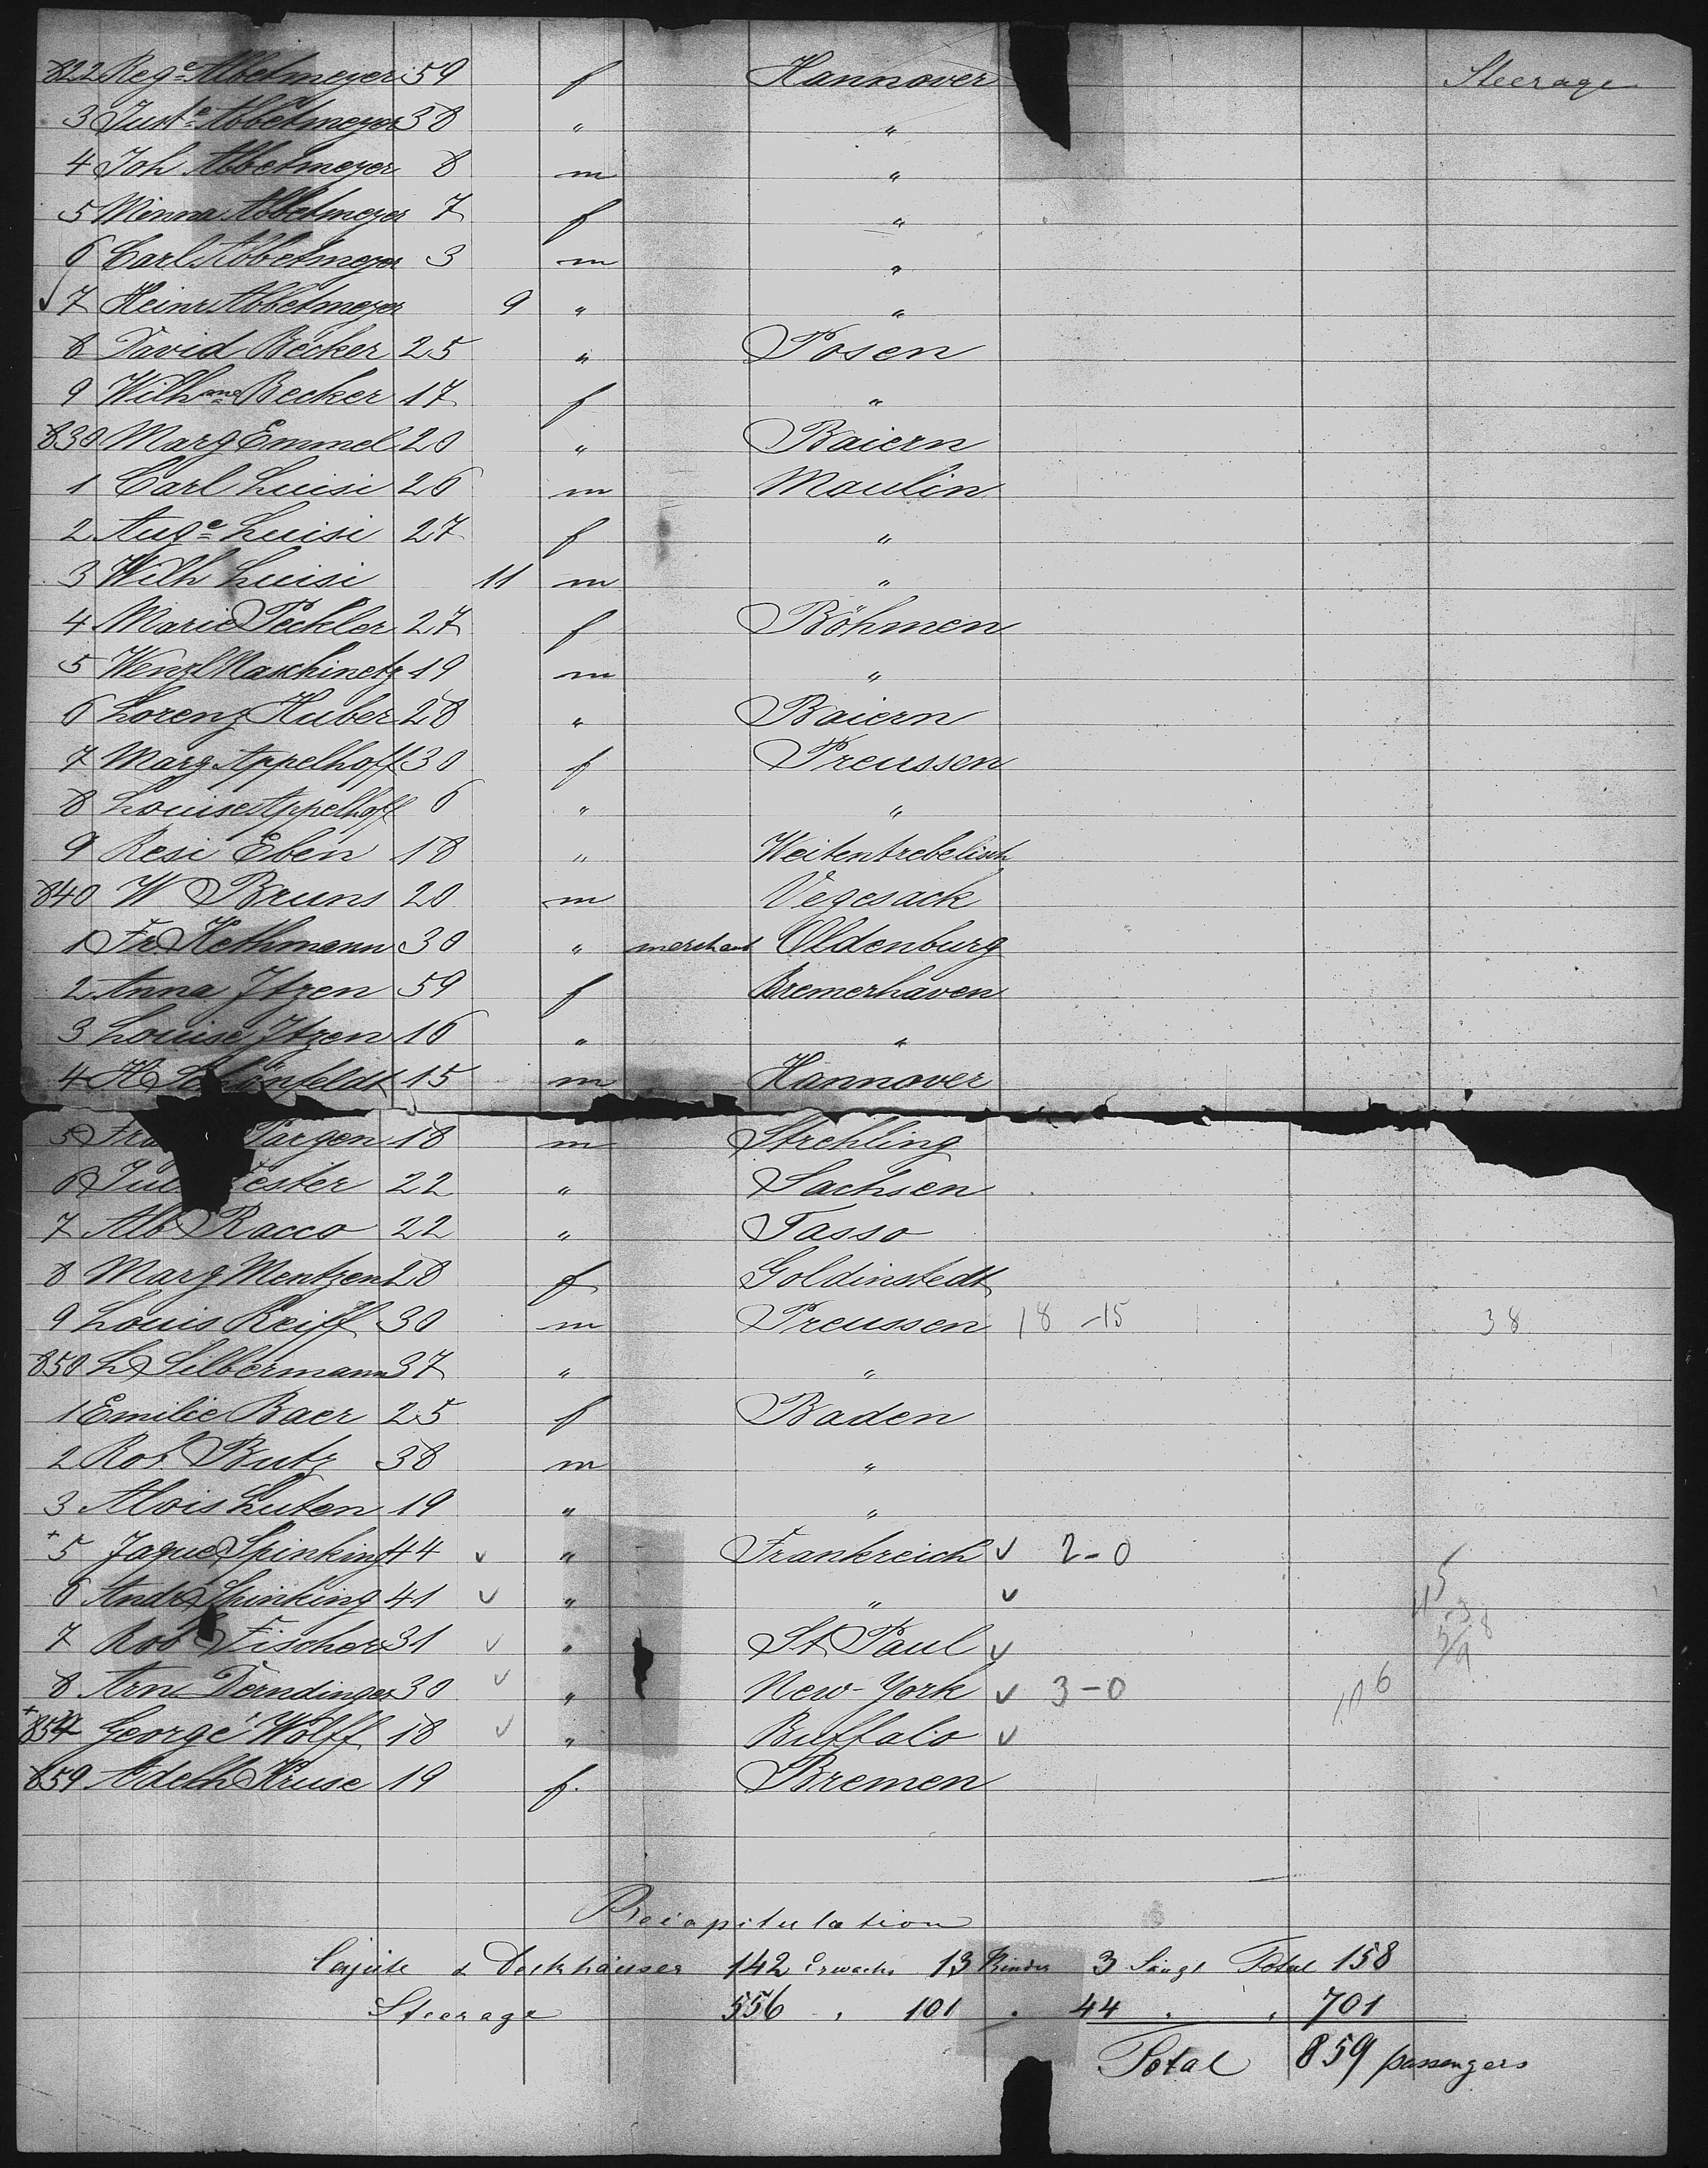 822 Rege Abbetmeyer 59 f Hannover Steerage
3 Juste Abbetmeyer 38 " "
4 Joh Abbetmeyer 8 m "
5 Minna Abbetmeyer 7 f "
6 Carl Abbetmeyer 3 m "
7 Heinr Abbetmeyer 9 " "
8 David Becker 25 " Posen
9 Wilhme Becker 17 f "
830 Marg Emmel 20 " Baiern
1 Carl Luisi 26 m Moulin
2 Auge Luisi 27 f "
3 Wilh Luisi 11 m "
4 Marie Peckler 27 f Böhmen
5 Wenzl Maschinetz 19 m "
6 Lorenz Huber 28 " Baiern
7 Marg Appelhoff 30 f Preussen
8 Louise Appelhoff 6 " "
9 Resi Eben 18 " Weitentrebetisch
840 W Bruns 20 m Vegesack
1 Fr. Hethmann 30 " merchant Oldenburg
2 Anna Itzen 59 f Bremerhaven
3 Louise Itzen 16 " "
4 H Schönfeldt 15 m Hannover
5 Pargen 18 m Strehling
6 Jul 22 " Sachsen
7 Alb Racco 22 " Tasso
8 Marg Mentzen 28 f Goldinstedt
9 Louis Reiff 30 m Preussen 18 -15 38
850 L Silbermann 37 " "
1 Emilie Baer 25 f Baden
2 Rob Butz 38 m "
3 Alois Luten 19 " "
+ 5 Jaque Spinking 44 v " Frankreich v 2-0
6 Andr Spinking 41 v " " v
7 Rob Fischer 31 v " St Paul v
8 Arn Derndinger 30 v " New-York v 3-0
+ 854 George Wolff 18 v " Buffalo v
859 Adelh Kruse 19 f. Bremen
Recapitulation
Cajüte & Deckhäuser 142 Erwachs 13 Kinder 3 Säugl Total 158
Steerage 556 " 101 " 44 " " 701
Total 859 passengers